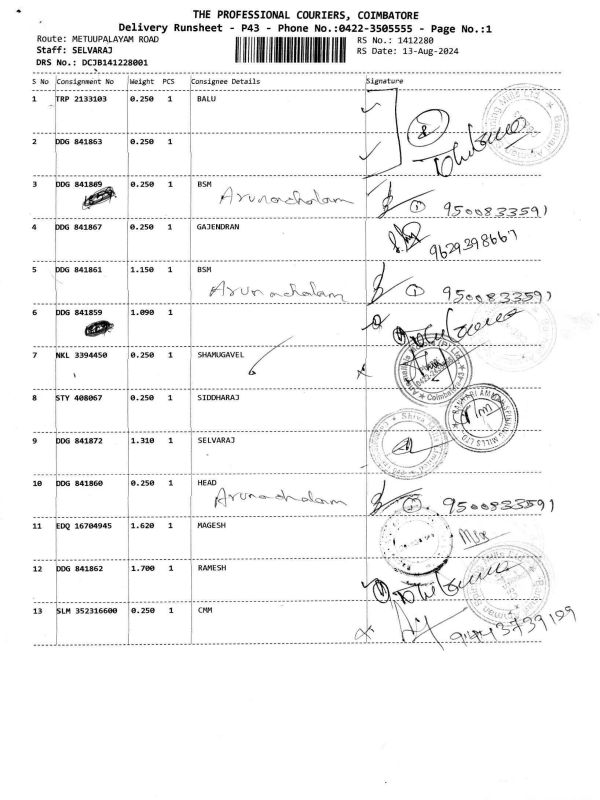 THE PROFESSIONAL COURIERS, COIMBATORE
Delivery Runsheet - P43 - Phone No.:0422-3505555 - Page No.:1
Route: METUUPALAYAM ROAD RS No.: 1412280
Staff: SELVARAJ RS Date: 13-Aug-2024
DRS No.: DCJB141228001
S No Consignment No Weight PCS Consignee Details Signature
1 TRP 2133103 0.250 1 BALU
2 DDG 841863 0.250 1
3 DDG 841869 0.250 1 BSM
Arunachalam 1 9500833591
4 DDG 841867 0.250 1 GAJENDRAN
9629398667
5 DDG 841861 1.150 1 BSM
Arunachalam 1 9500833591
6 DDG 841859 1.090 1
7 NKL 3394450 0.250 1 SHAMUGAVEL
8 STY 408067 0.250 1 SIDDHARAJ
9 DDG 841872 1.310 1 SELVARAJ
10 DDG 841860 0.250 1 HEAD
Arunachalam 9500833591
11 EDQ 16704945 1.620 1 MAGESH
12 DDG 841862 1.700 1 RAMESH
13 SLM 352316600 0.250 1 CMM
9443739199